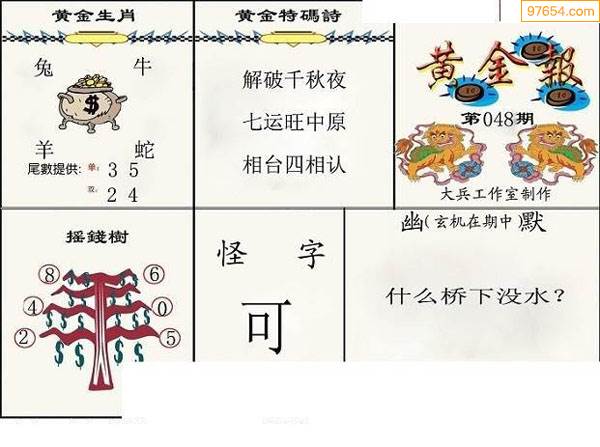 97654.com
黄金生肖
兔 牛
$
羊 蛇
尾數提供: 单: 3 5
双: 2 4
黄金特碼詩
解破千秋夜
七运旺中原
相台四相认
黄金報
第048期
大兵工作室制作
摇錢樹
8 6
4 0
2 5
$ $ $ $ $ $ $ $
怪 字
可
幽(玄机在期中)默
什么桥下没水?